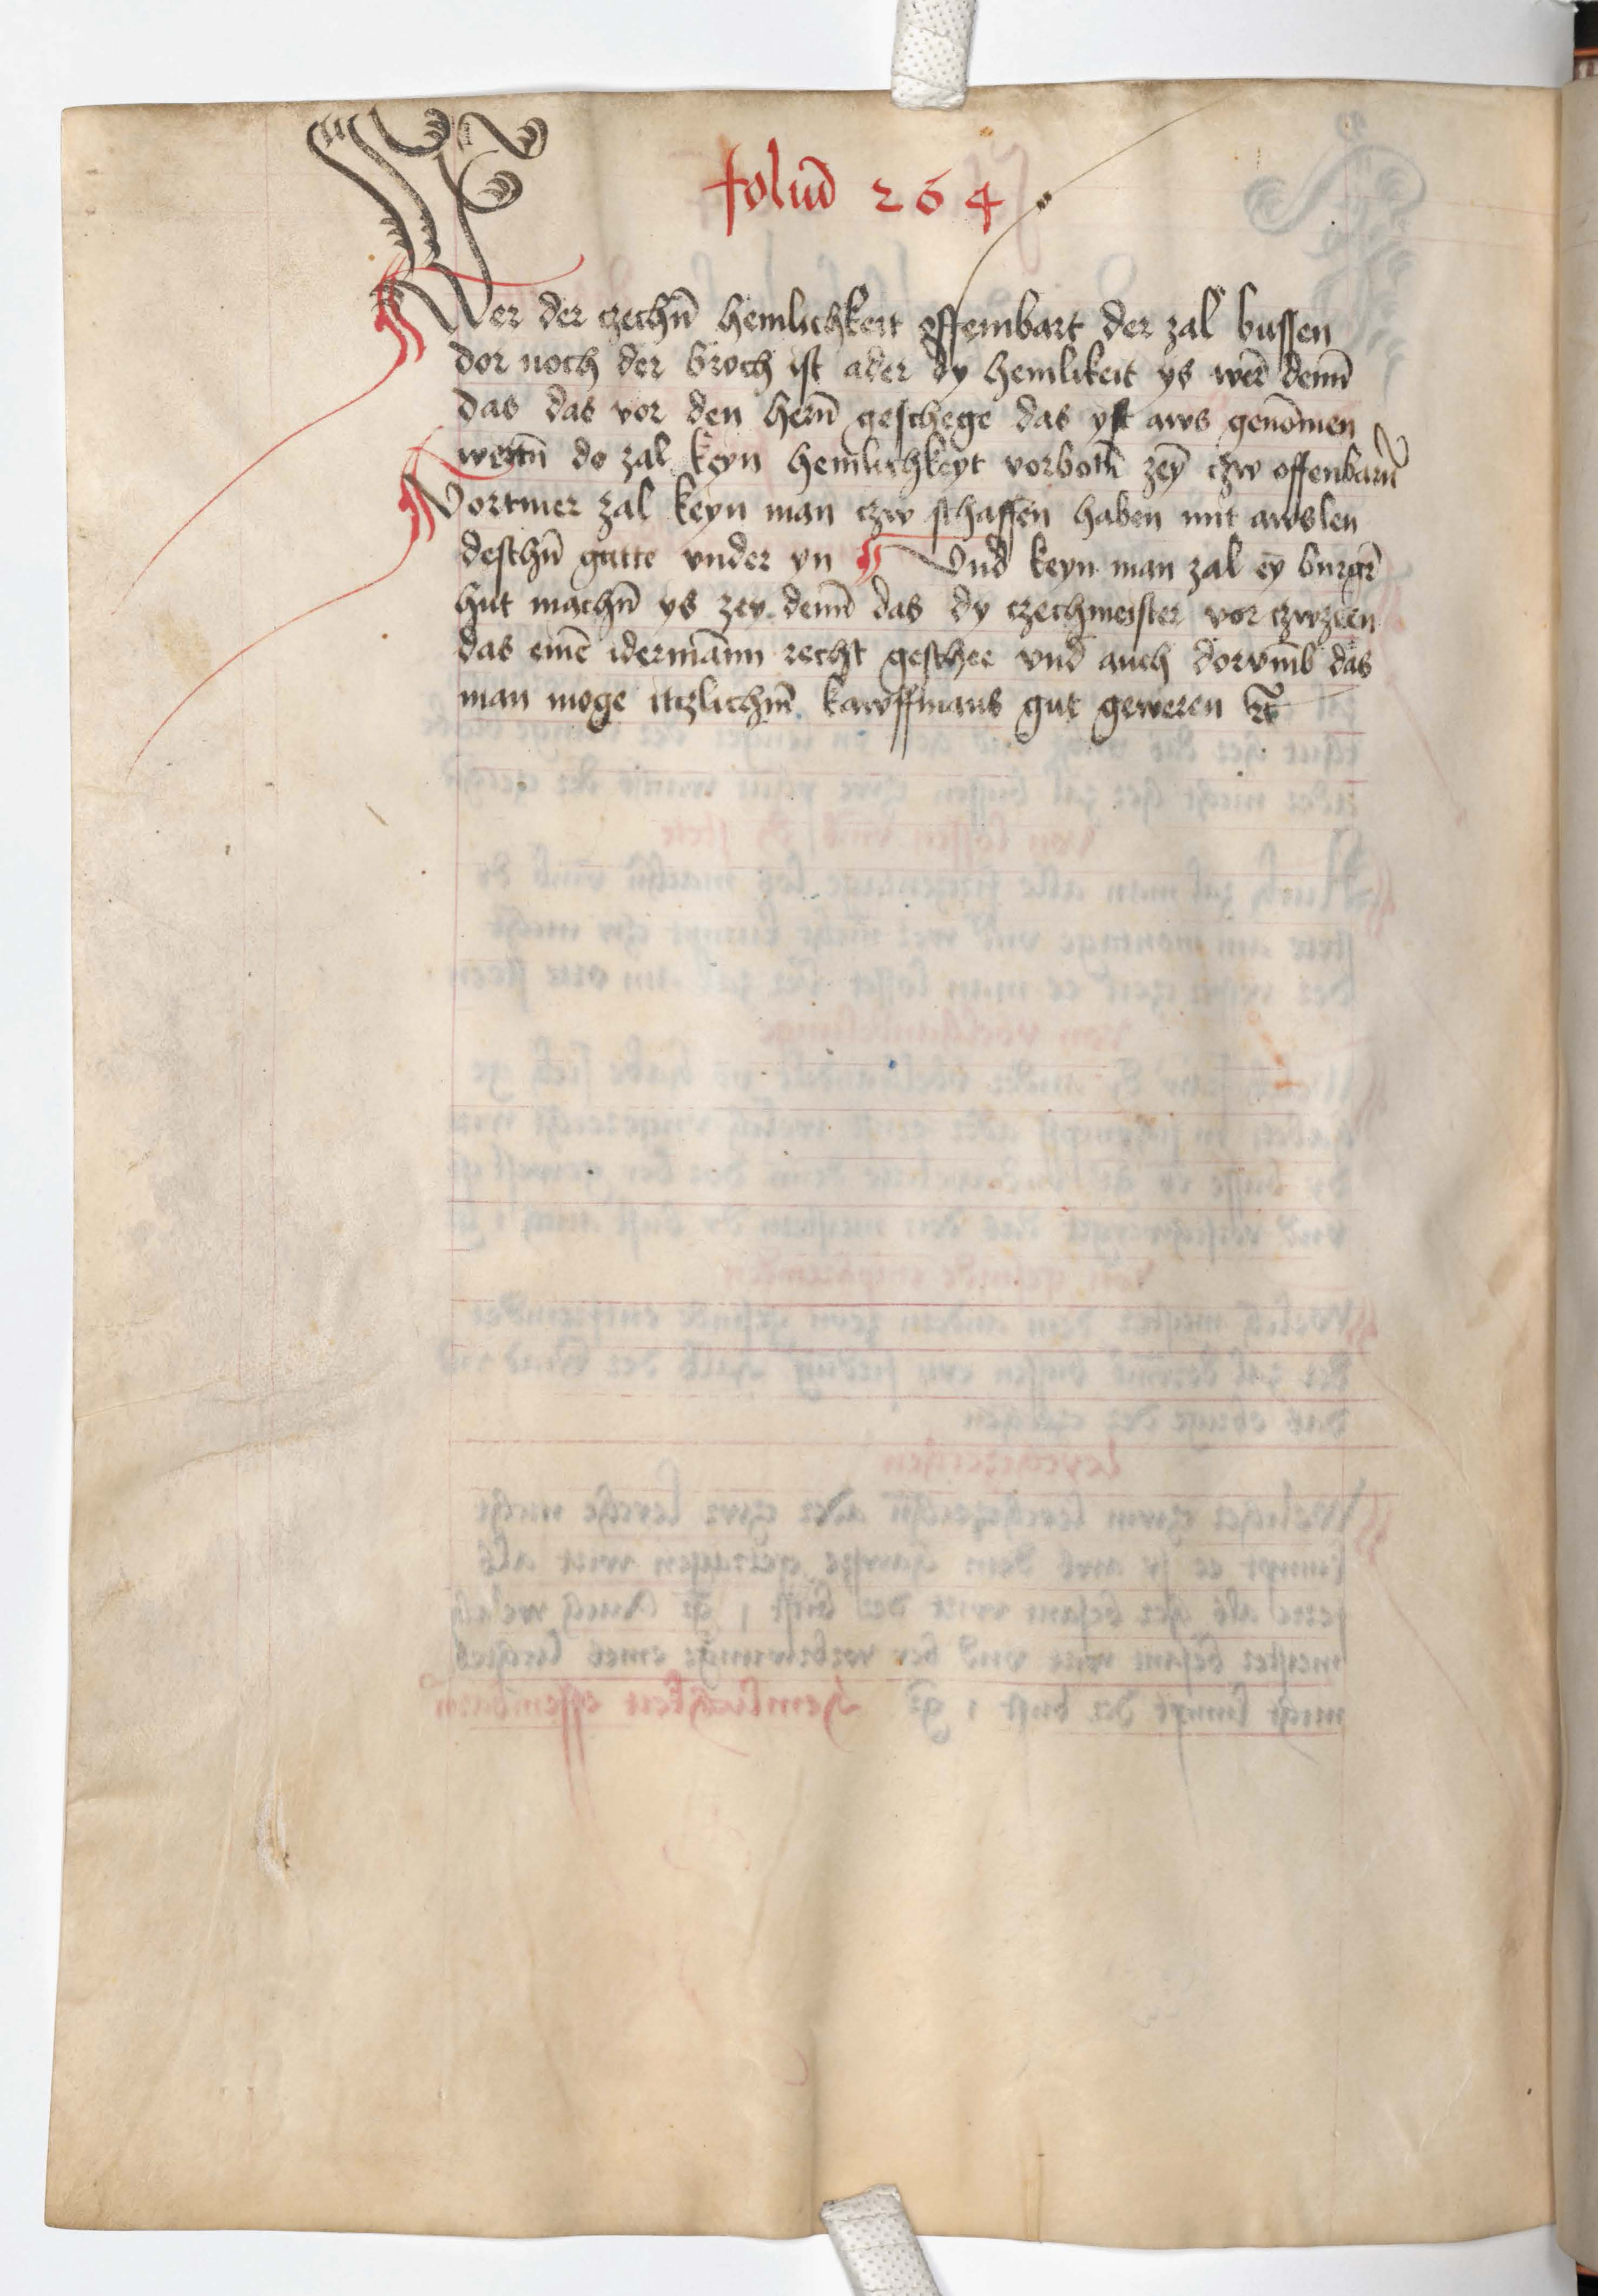 foliu᷒ 264
Wer der czechn̄ hemlichkeit offembart der zal bussen
dor noch der broch ist ader dy hemlikeit ys wer̄ denn̄
das das vor den hern̄ geschege das yst aws genōmen
do zal keyn hemlichkeyt vorboth̄ zey̅ czw offenbarn̄
Vortmer zal keyn man czw schaffen haben mit awslen
deschn̄ gutte vnder yn Vnd keyn man zal ey̅ burger̄
hut machn̄ ys zey denn̄ das dy czechmeister vor czwzeen
das eine̅ idermānn recht geschee vnd auch dorvm̄b das
man moge itczlichm̄ kawffmans gut geweren